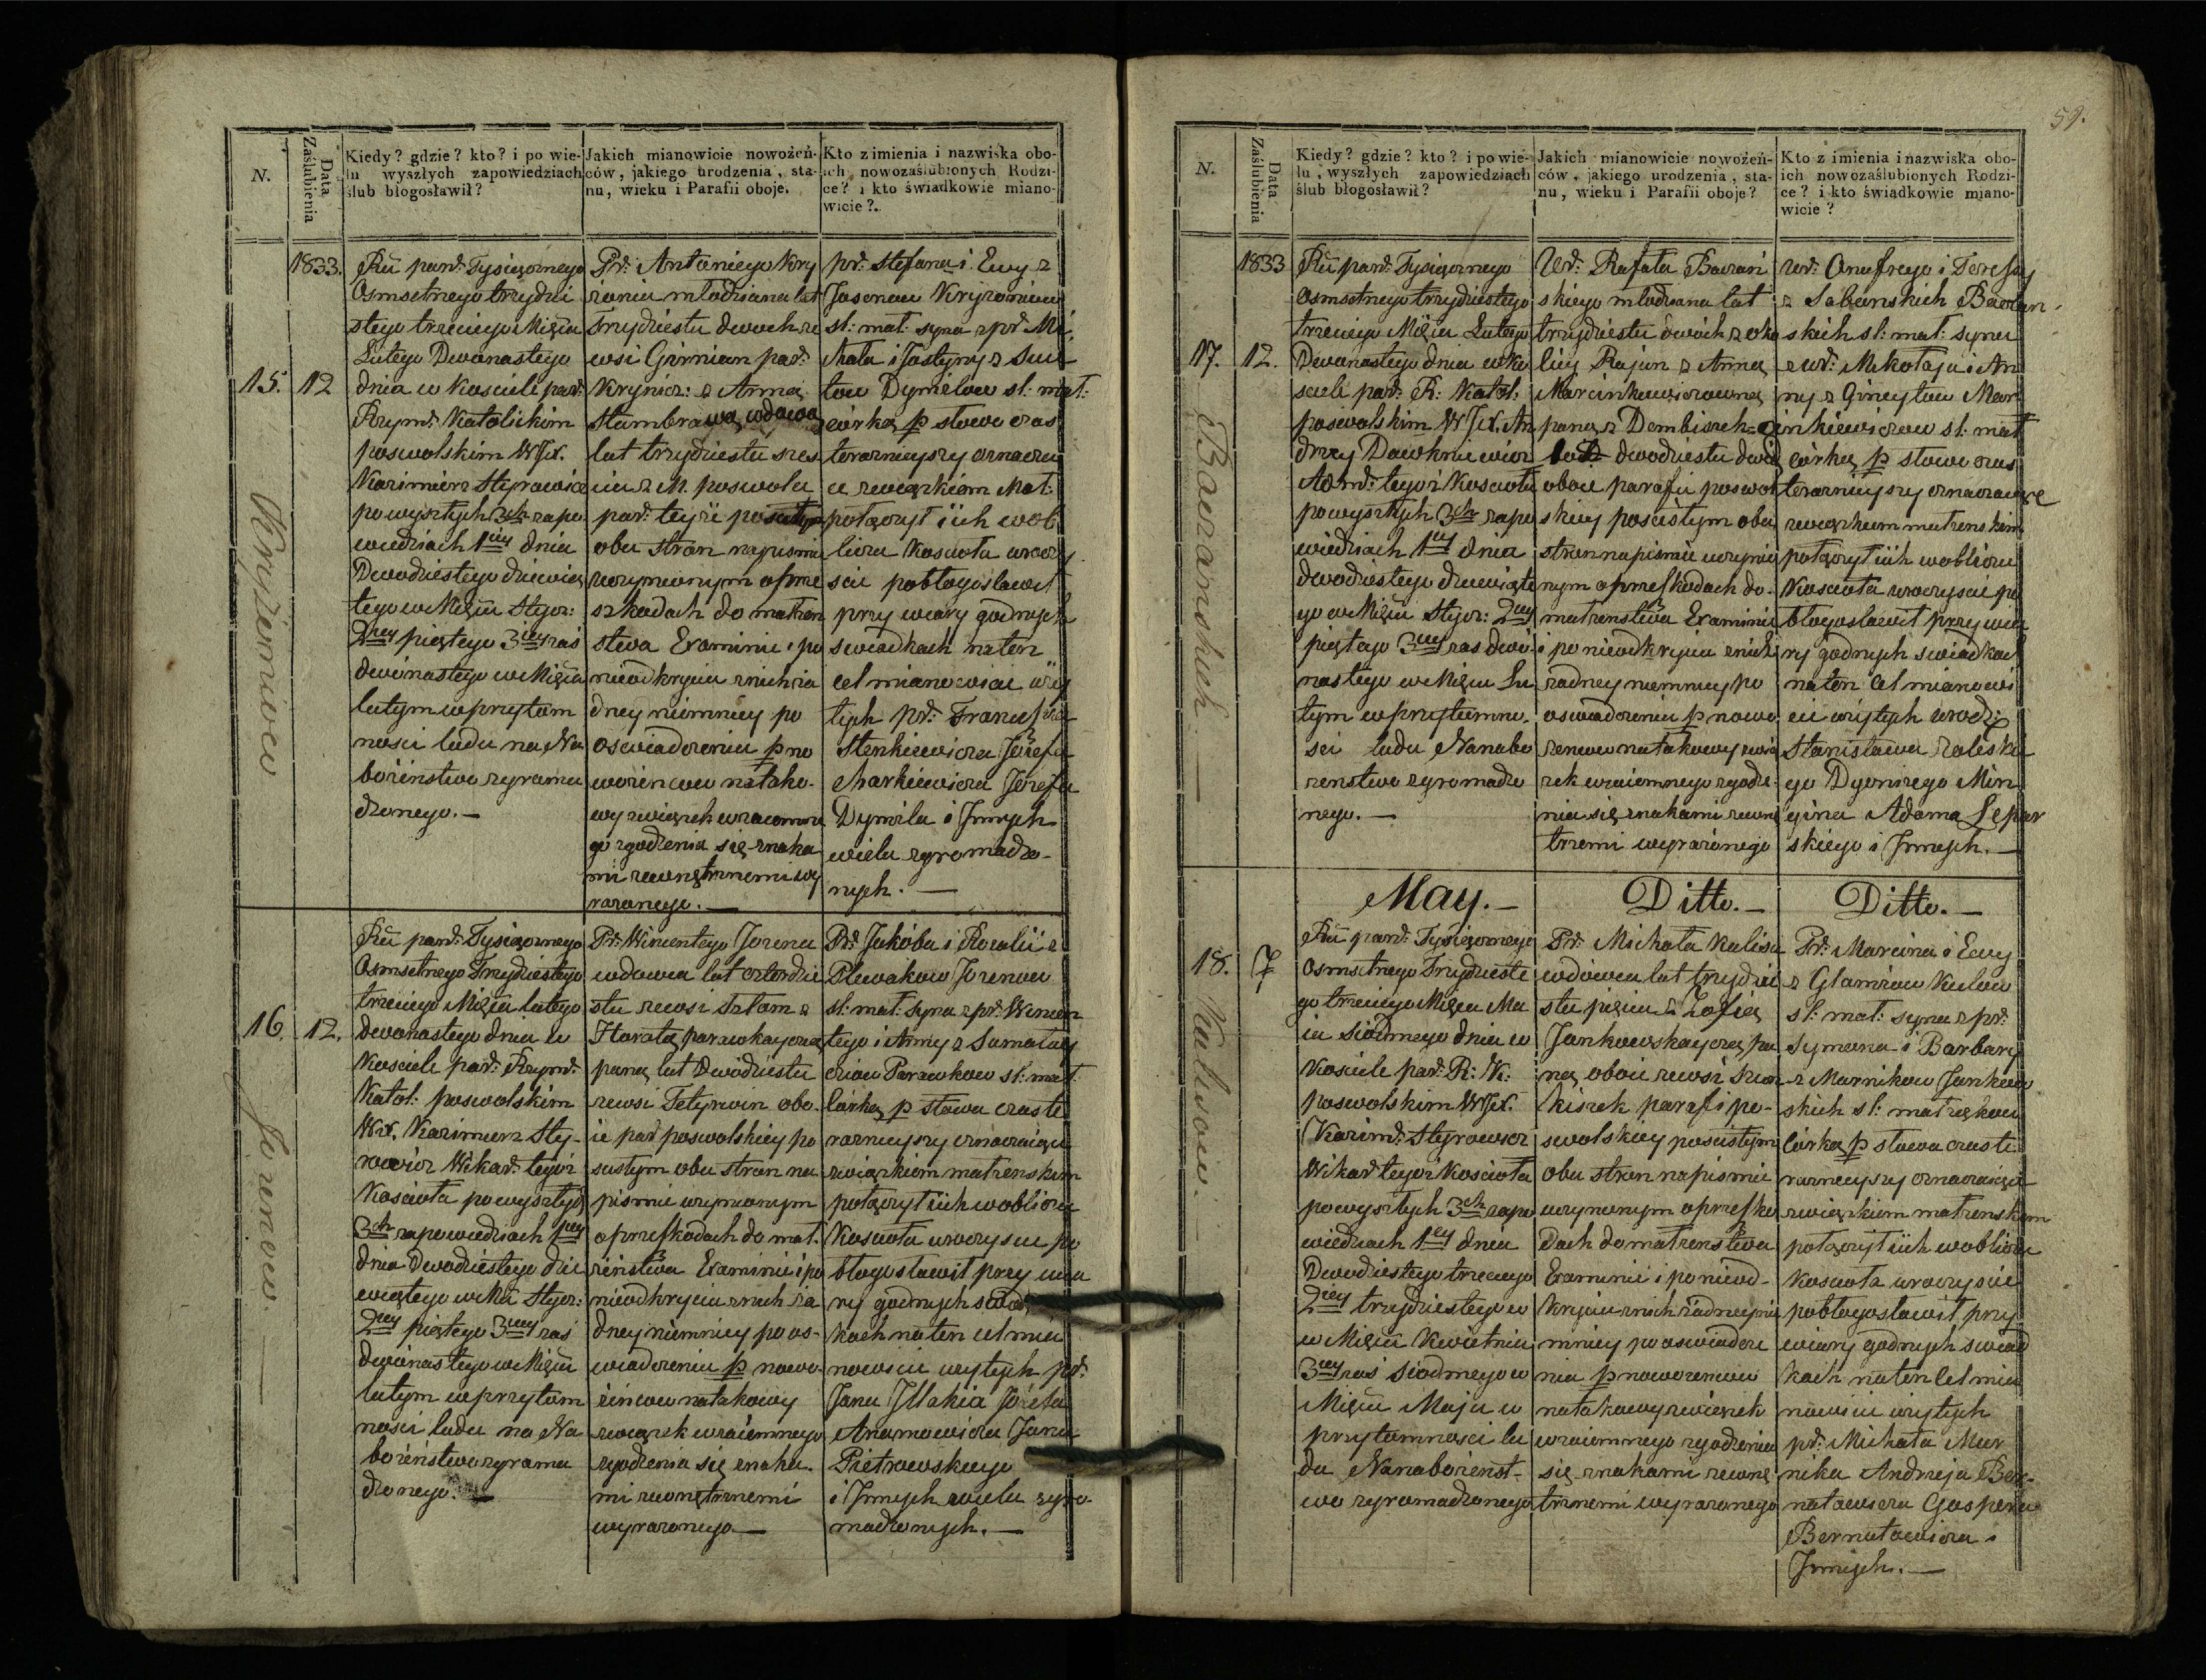 N.
Data Zaślubienia
Kiedy? gdzie? kto? i po wie-
lu wyszłych zapowiedziach
ślub błogosławił?
Jakich mianowicie nowożeń-
ców, jakiego urodzenia, sta-
nu, wieku i Parafii oboje.
Kto z imienia i nazwiska obo-
ich nowozaślubionych Rodzi-
ce? i kto świadkowie miano-
wicie?.
1833.
15.
12
Kryżeniow
Rŭ pard: Tysięcznego
Osmsetnego trzydzi
stego trzeciego Mięsia
Lutego Dwónastego
dnia w kosciele pard:
Rzym: Katolickim
poswolskim WJX.
Kazimierz Styrowicz
powyszłych 3ch zapo
wiedziach 1ey dnia
Dwódziestego dziewią
tego w Mięsiu Stycz:
2iey piątego 3iey zaś
dwónastego w Mięsiu
lutym w przytom
nosci ludu na Na
bożeństwo zgroma
dzonego.—
Pr: Antoniego Kry
żenia młodziana lat
Trzydziestu dwoch ze
wsi Girnian par:
Krynicz: z Anną
Stambrawą wdową
lat trzydziestu szes
ciu z M. poswola
par: teyże po scisłym
obu stron na pismie
uczynionym o prze
szkodach do małżen
stwa Examinie i po
nieodkryciu z nich ża
dney niemniey po
Oswiadczeniu p no
wożeńcow na tako-
wy związek wzaiemne
go zgodzenia się znaka
mi zewnętrznemi wy
rażonego.—
pr: Stefana i Ewy z
Jasonow Kryżeniow
sl: mał: syna z pr: Mi
chała i Justyny z Swi
low Dymelow sl: mał:
córkę p słowa czas
teraznieyszy oznacza
ce związkiem Mał:
połączył iich w ob
liczu Koscioła uroczy
scie pobłogosławił
przy wiary godnych
swiadkach na ten
cel mianowicie uży
tych pr: Franciszka
Stenkiewicza Józefa
Markiewicza Józefa
Dymila i Jnnych
wielu zgromadzo-
nych.—
16.
12.
Jozenow.—
Rŭ pard: Tysięcznego
Osmsetnego Trzydziestego
trzeciego Mięsia lutego
dwónastego dnia w
Kosciele par: Rzym:
Katol: poswolskim
WX. Kazimierz Sty-
rowicz Wikar: tegóż
Koscioła powyszłych
3ch zapowiedziach 1ey
dnia Dwódziestego dzie
wiątego w Mie Stycz:
2iey piątego 3iey zaś
dwónastego w Mięsiu
lutym w przytom
nosci ludu na Na
bożeństwo zgroma
dzonego.—
Pr: Wincentego Jozena
wdowca lat czterdzie
stu ze wsi Szłom z
Haratą parawkayczą
panną lat Dwódziestu
ze wsi Tetyrwin obo-
ie par poswolskiey po
scisłym obu stron na
pismie uczynionym
o przeszkodach do mał.
żeństwa Examinie i po
nieodkryciu z nich ża
dney niemniey po os-
wiadczeniu p nowo
żeńcow na takowy
związek wzaiemnego
zgodzenia się znaka-
mi zewnętrznemi
wyrażonego—
Pr: Jakóba i Rozalii z
Plewakow Jozenow
sl: mał: syna z pr: Wincen
tego i Anny z Samulay
ciow Parawkow sl: mał.
Córkę p słowa czas te
raznieyszy oznaczaiące
związkiem małżenskim
połączył iich w obliczu
Koscioła uroczyscie po
błogosławił przy wia
ry godnych swiad
kach na ten cel mia
nowicie użytych pr:
Jana Jllakia Józefa
Anamowicza Jana
Pietrowskiego
i Jnnych wielu zgro-
madzonych.—
59.
N.
Data Zaślubienia
Kiedy? gdzie? kto? i po wie-
lu, wyszłych zapowiedziach
ślub błogosławił?
Jakich mianowicie nowożeń-
ców, jakiego urodzenia, sta-
nu, wieku i Parafii oboje?
Kto z imienia i nazwiska obo-
ich nowozaślubionych Rodzi-
ce? i kto świadkowie miano-
wicie?
1833
17.
12.
Baczanskich.—
Rŭ pard: Tysięcznego
Osmsetnego trzydziestego
trzeciego Mięsia Lutego
Dwónastego dnia w Ko
sciele par: R: Katol:
poswolskim WJX. An
drzey Dawkniewicz
Adm: tegóż Koscioła
powyszłych 3ch zapo
wiedziach 1ey dnia
dwódziestego dziewiąte
go w Mięsiu Stycz: 2iey
piątego 3iey zas dwó
nastego w Mięsiu Lu
tym w przytomno
sci ludu Na nabo
żenstwo zgromadzo
nego.—
Ur: Rafała Baczań
skiego młodziana lat
trzydziestu dwóch z oko
licy Rajun z Anną
Marcinkiewiczowną
panną z Dembiszek
lat dwódziestu dwóch
oboie parafii poswol
skiey po scisłym obu
stron na pismie uczynio
nym o przeszkodach do
małżenstwa Examinie
i po nieodkryciu z nich
żadney niemniey po
oswiadczeniu p nowo
żencow na takowy zwią
zek wzaiemnego zgodze
nia się znakami zewnę
trznemi wyrażonego
Ur: Onufrego i Teressy
z Sabanskich Baczan
skich sl: mał: syna
z ur: Mikołaja i An
ny z Gineytow Mar
cinkiewiczow sl: mał
córkę p słowa czas
teraznieyszy oznaczaiące
związkiem małżenskim
połączył iich w obliczu
Koscioła uroczyscie po
błogosławił przy wia
ry godnych swiadkach
na ten cel mianowi
cie użytych urodz:
Stanisława Zaleski
ego Dyonizego Min
gina Adama Lepar
skiego i Jnnych.—
May.—
Ditto.—
Ditto.—
18.
7
Kulisow.—
Rŭ pard: Tysięcznego
Osmsetnego Trzydzieste
go trzeciego Mięsia Ma
ia siódmego dnia w
Kosciele par: R: K:
poswolskim WJX.
Kazim: Styrowicz
Wikar tegóż Koscioła
powyszłych 3ch zapo
wiedziach 1ey dnia
Dwódziestego trzeciego
2iey trzydziestego w
w Mięsiu Kwietniu
3iey zaś siódmego w
Mięsiu Maju w
przytomnosci lu
du Na nabożenst-
wo zgromadzonego
Pr: Michała Kulisa
wdowca lat trzydzie
stu pięciu z Zofią
Jankowskayczą pan
ną oboie ze wsi Kwa
kiszek parafi po-
swolskiey po scisłym
obu stron na pismie
uczynionym o przeszko
dach do małżenstwa
Examinie i po nieod-
kryciu z nich żadney nie
mniey po oswiadcze
nia p nowożencow
na takowy związek
wzaiemnego zgodzenia
się znakami zewnę
trznemi wyrażonego
Pr: Marcina i Ewy
z Glamżow Kulow
sl: mał: syna z pr:
Symona i Barbary
z Murnikow Jankow
skich sl: małżąkow
Córkę p słowa czas te
raznieyszy oznaczaiące
związkiem małżenskim
połączył iich w obliczu
Koscioła uroczyscie
pobłogosławił przy
wiary godnych swiad
kach na ten cel mia
nowicie użytych
pr: Michała Mur
nika Andrzeja Ber-
natowicza Gaspera
Bernatowicza i
Jnnych.—